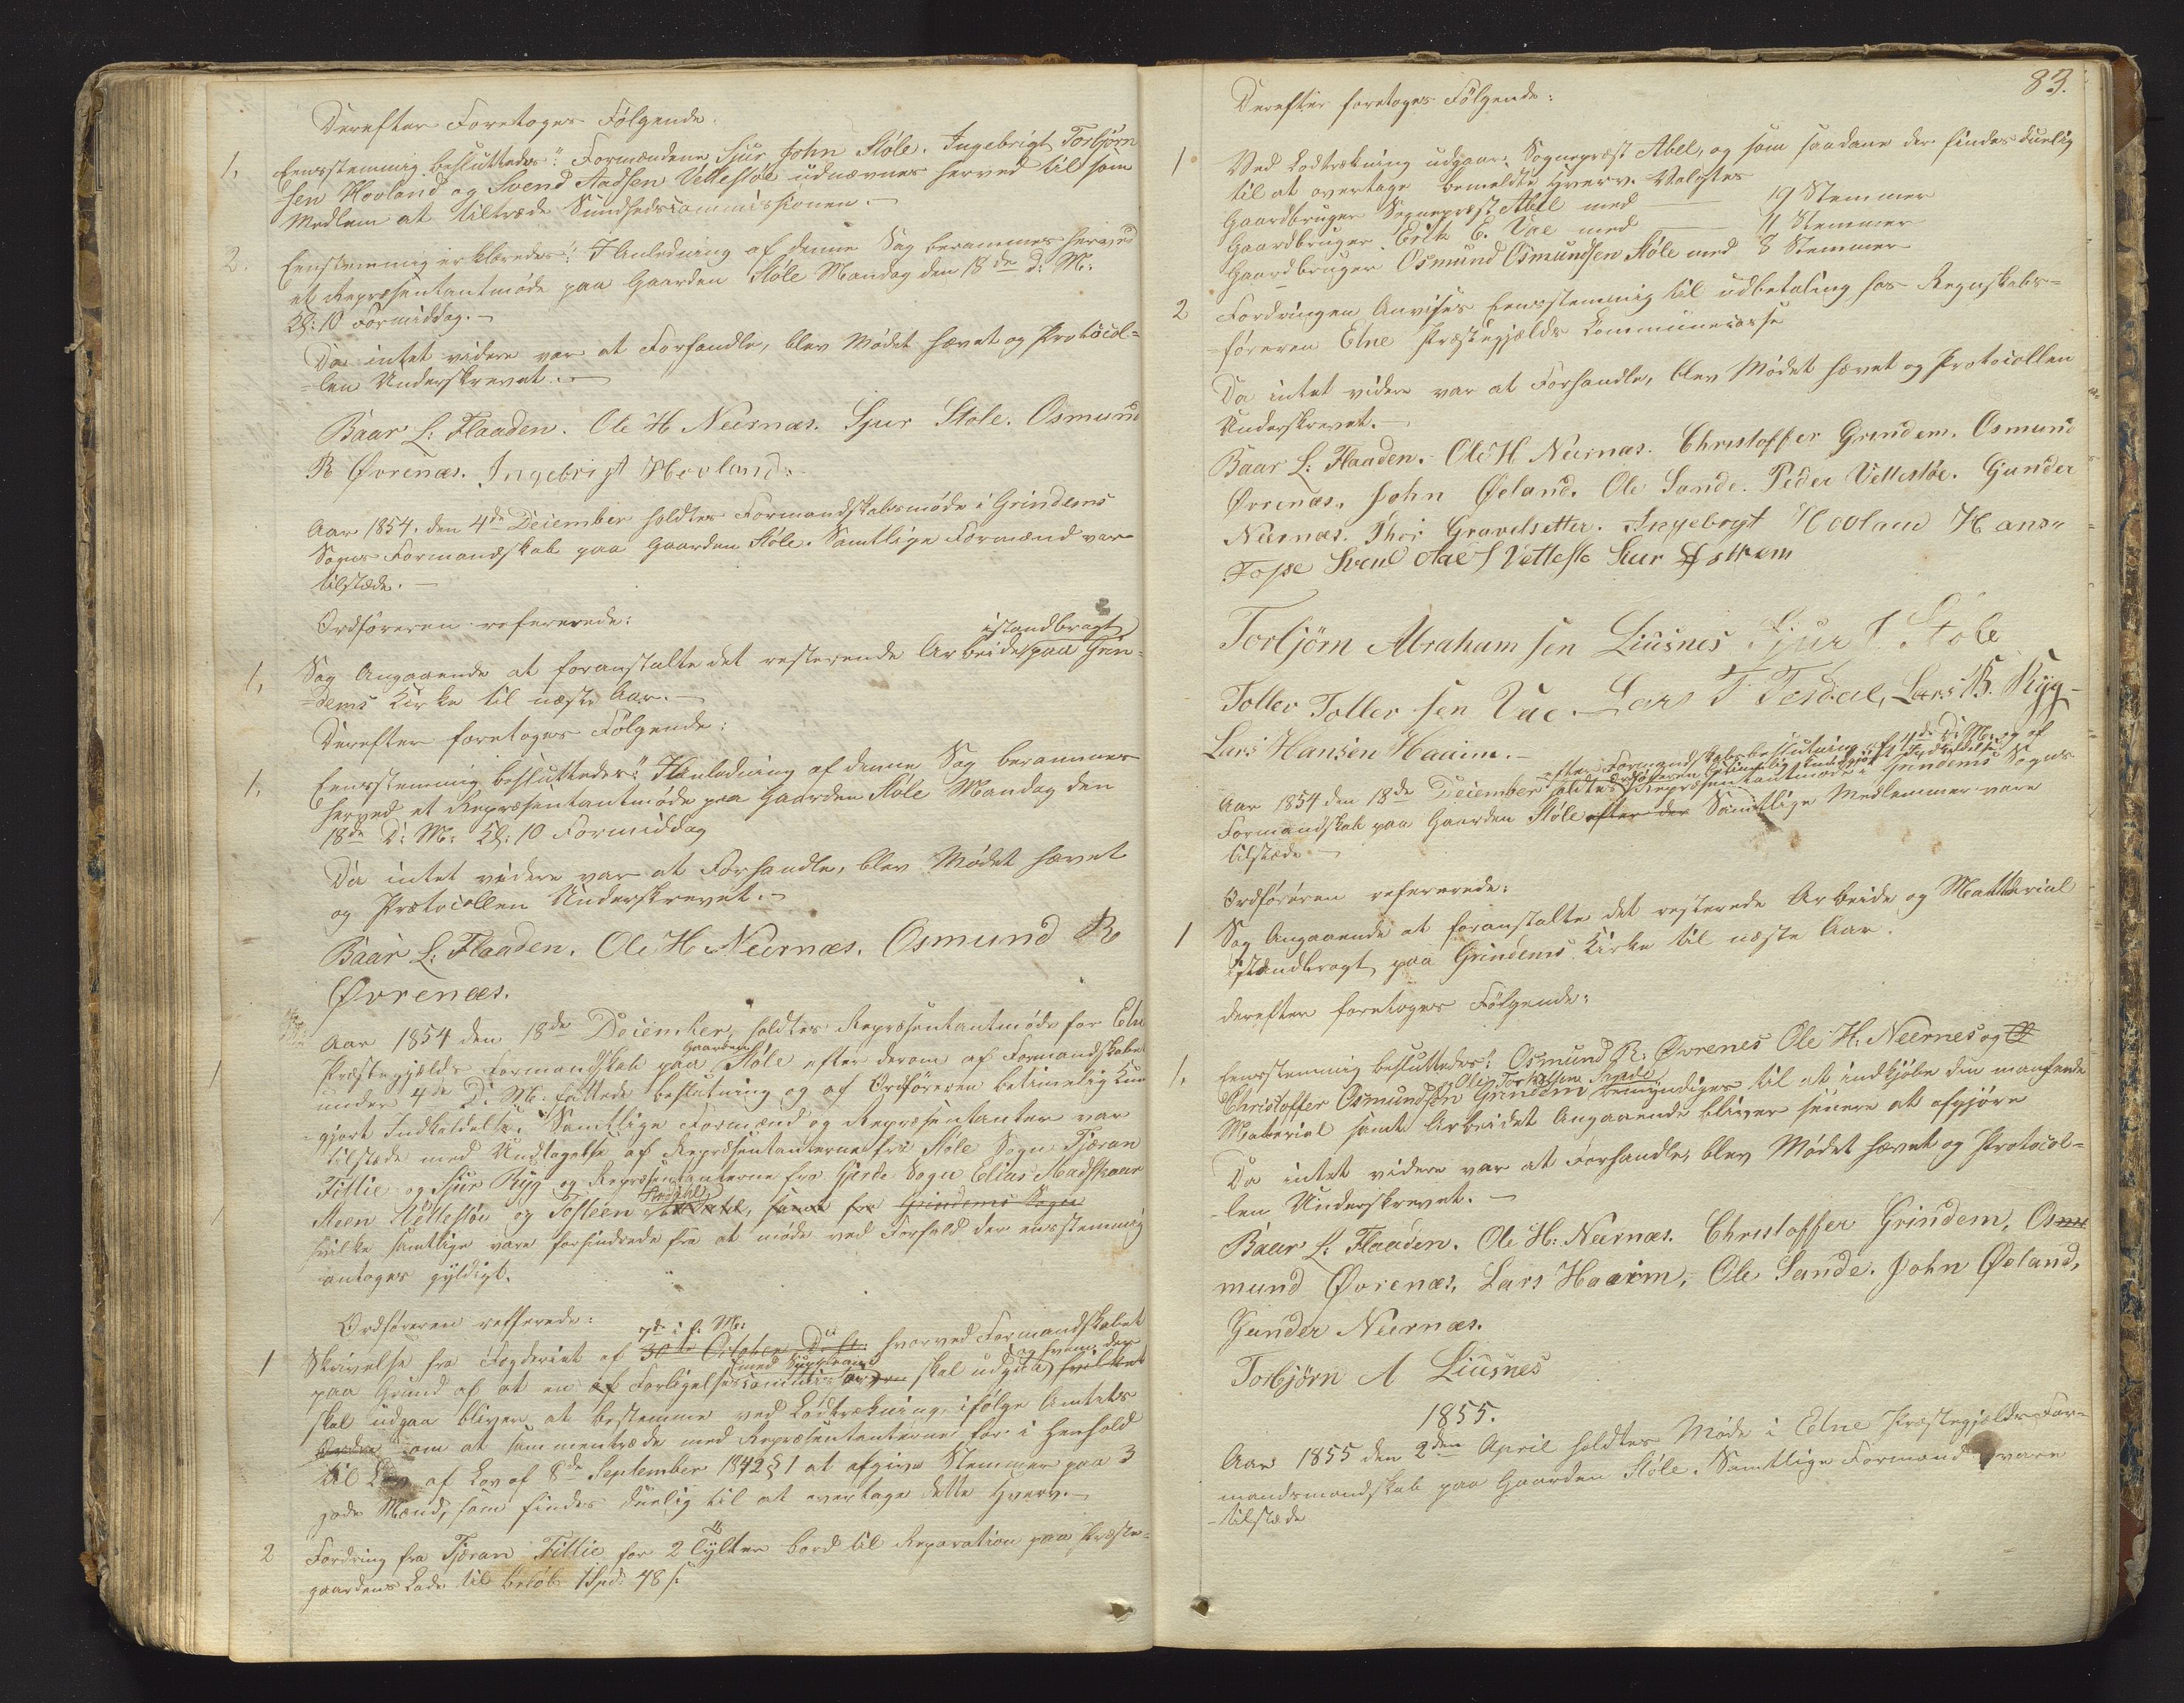 Derefter Foretoges Følgende:
1, Eensstemmig besluttedes: Formændene Sjur John Støle. Ingebrigt Torbjørn
sen Hovland og Svend Aadsen Vettestøe udnævnes herved til som
Medlem at tiltræde Sundhedscommissionen. –
2. Eenstemmig erklæredes: I Anledning af denne Sag berammes herved
et Repræsentantmøde paa Gaarden Støle Mandag den 18de d: M:
Kl: 10 Formiddag. –
Da intet videre var at Forhandle, blev Mødet hævet og Protocol-
-len Underskrevet. –
Baar L: Flaaden. Ole H Neernæs. Sjur Støle. Osmund
R Øvrenæs. Ingebrigt Hovland.
Aar 1854. den 4de December holdtes Formandskabsmøde i Grindems
Sogns Formandskab paa Gaarden Støle. Samtlige Formænd var
tilstæde. –
Ordføreren refererede:
istandbragt
1, Sag Angaaende at foranstalte det resterende Arbeide paa Grin-
-dems Kirke til næste Aar. –
Derefter foretoges Følgende:
1, Eensstemmig besluttedes: I Anledning af denne Sag berammes
herved et Repræsentantmøde paa Gaarden Støle Mandag den
18de D: M: Kl: 10 Formiddag
Da intet videre var at Forhandle, blev Mødet hævet
og Protocollen Underskrevet. –
Baar L: Flaaden. Ole H Neernæs. Osmund R
Øvrenæs.
Aar 1854 den 18de December, holdtes Repræsentantmøde for Etne
Gaarden
Præstegjelds Formandskab paa Støle efter derom af Formandskabet
under 4de D: M: fattede beslutning og af Ordføreren betimelig Kund
-gjort Indkaldelse. Samtlige Formænd og Repræsentanter var
tilstæde med Undtagelse af Repræsentanterne fra Støle Sogn Tjæran
Fittie og Sjur Ryg og Repræsentanterne fra Gjerde Sogn Elias Madskaar
Steen Vettestøe og Tosteen samt fra Grindems Sogn
hvilke samtlige vare forhindrede fra at møde ved Forfald der eensstemmig
antoges gyldigt.
Ordføreren refferede:
7de i f: M:
1 Skrivelse fra Fogderiet af 30te October D: A: hvorved Formandskabet
med Suppleant og hvem der
paa Grund af at en af Forligelsescommis skal udgaa hvilket
skal udgaa bliver at bestemme ved Lodtrækning, ifølge Amtets
Ordre om at sammentræde med Repræsentanterne for i Henhold
til Lov af Lov af 8de September 1842 § 1 at afgive Stemmer paa 3
gode Mænd, som findes duelig til at overtage dette Hverv. –
2 Fordring fra Tjæran Fittie for 2 Tylter bord til Reparation paa Præste-
gaardens Lade til beløb 1 Spd: 48 s.
83.
Derefter foretoges Følgende:
1 Ved Lodtrækning udgaar Sognepræst Abel, og som saadane der findes duelig
til at overtage bemeldte Hverv. Valgtes
Gaardbruger Sognepræst Abel med — 19 Stemmer
Gaardbruger Erik E. Vae med — 11 Stemmer
Gaardbruger Osmund Osmundsen Støle med 8 Stemmer
2 Fordringen Anvises Eensstemmig til udbetaling hos Regnskabs-
-føreren Etne Præstegjelds Kommunecasse
Da intet videre var at Forhandle, blev Mødet hævet og Protocollen
Underskrevet. –
Baar L: Flaaden. Ole H Neernæs. Christoffer Grindem. Osmund
Øvrenæs. John Øeland. Ole Sande. Peder Vettestøe. Gunder
Neernæs. Thor Gravelsetter. Ingebrigt Hovland Hans
Svend Vettestø Østrem
Torbjörn Abraham sen Liüsnes Sjur J Støle
Toller Toller sen Vae. Lars T Tesdal, Lars B. Ryg –
Lars Hansen Haaim. –
efter Formandskabsbeslutning af 4de D: M: og af
Ordføreren betimelig kundgjort Indkaldelse
Aar 1854 den 18de December holdtes Repræsentantmøde i Grindems Sogns
Formandskab paa Gaarden Støle efter der Samtlige Medlemmer vare
tilstæde –
Ordføreren refererede:
1 Sag Angaaende at foranstalte det resterede Arbeide og Matterial
istandbragt paa Grindems Kirke til næste Aar.
derefter foretoges Følgende:
1, Eensstemmig besluttedes: Osmund R: Øvrenes Ole H: Neernes og
Ole Torkelsen Sande
Christoffer Osmundsøn Grindem bemyndiges til at indkjøbe den manglende
Material samt Arbeidet Angaaende bliver senere at afgjøre
Da intet videre var at Forhandle, blev Mødet hævet og Protocol-
-len Underskrevet. –
Baar L: Flaaden. Ole H: Neernæs. Christoffer Grindem, Os
mund Øvrenæs, Lars Haaim, Ole Sande. John Øeland,
Gunder Neernæs.
Torbjørn A Liüsnes
1855.
Aar 1855 den 2den April holdtes Møde i Etne Præstegjelds For-
mandsmandskab paa Gaarden Støle. Samtlige Formænd vare
-tilstæde